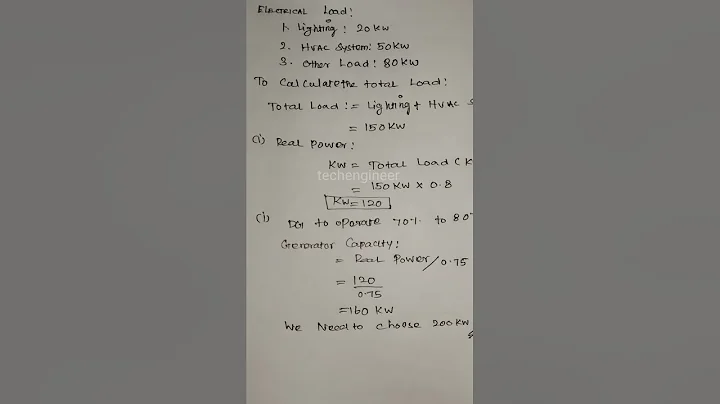 ELECTRICAL Load:
1. Lighting: 20 KW
2. HVAC System: 50 KW
3. Other Load: 80 KW
To Calculate the total Load:
Total Load := Lighting + HVAC S
= 150 KW
(i) Real Power:
KW = Total Load (K
techengineer
= 150 KW × 0.8
KW = 120
(i) DG to oparate 70% to 80%
Generator Capacity:
= Real Power / 0.75
= 120
0.75
= 160 KW
We Need to choose 200 KW